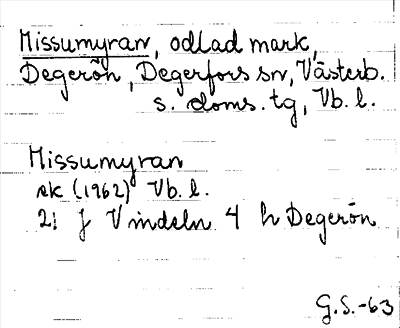 Missumyran, odlad mark,
Degerön, Degerfors sn, Västerb.
s. doms. tg, Vb. l.
Missumyran
ek (1962) Vb. l.
21 J Vindeln 4 h Degerön
G.S. -63